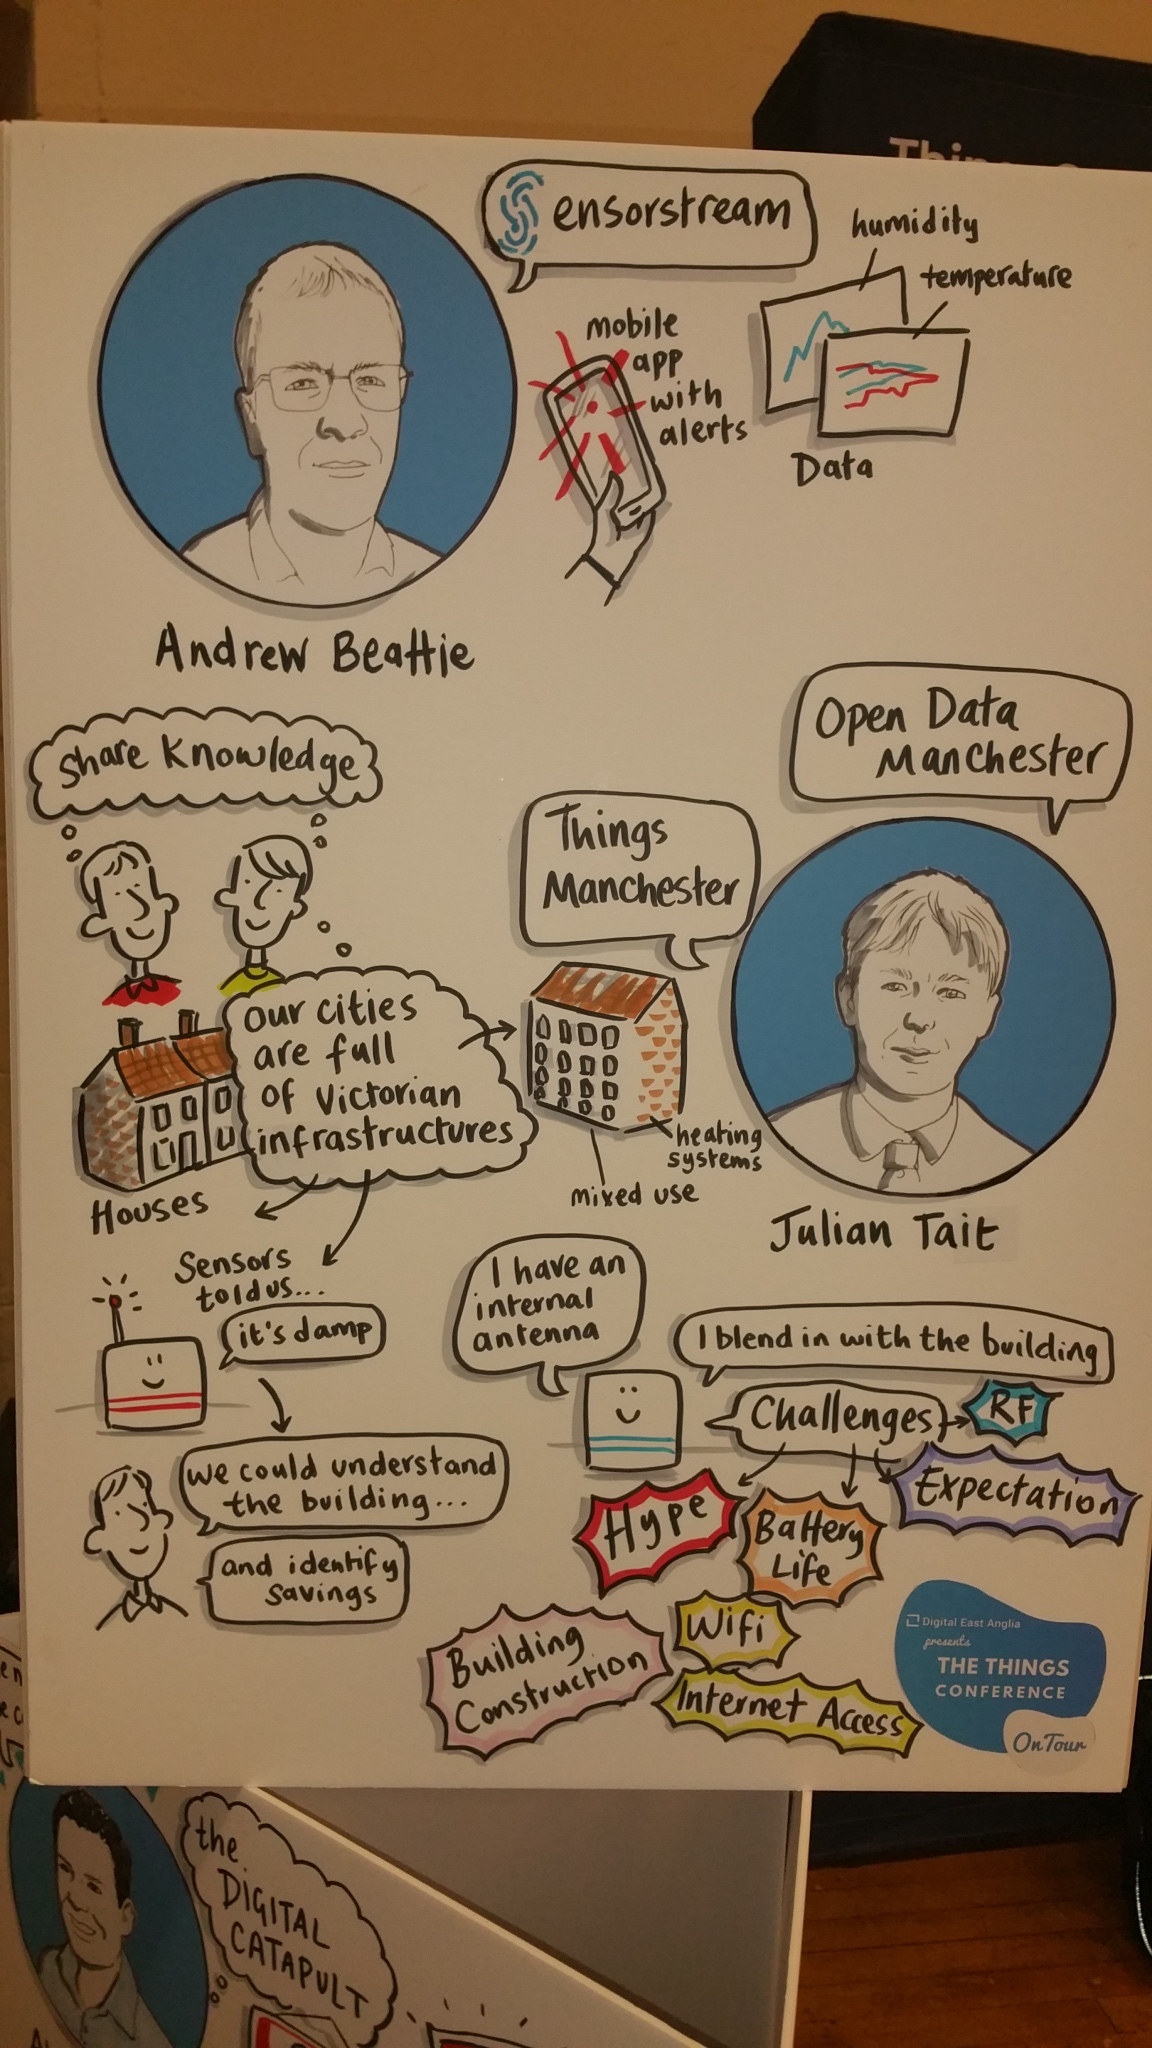 Sensorstream
humidity
temperature
mobile
app
with
alerts
Data
Andrew Beattie
Share Knowledge
Open Data
Manchester
Things
Manchester
our cities
are full
of Victorian
infrastructures
Houses
heating
systems
mixed use
Julian Tait
Sensors
told us...
it's damp
I have an
internal
antenna
I blend in with the building
Challenges
RF
we could understand
the building...
and identify
savings
Hype
Battery
Life
Expectation
Wifi
Building
Construction
Internet Access
Digital East Anglia
presents
THE THINGS
CONFERENCE
On Tour
the
DIGITAL
CATAPULT